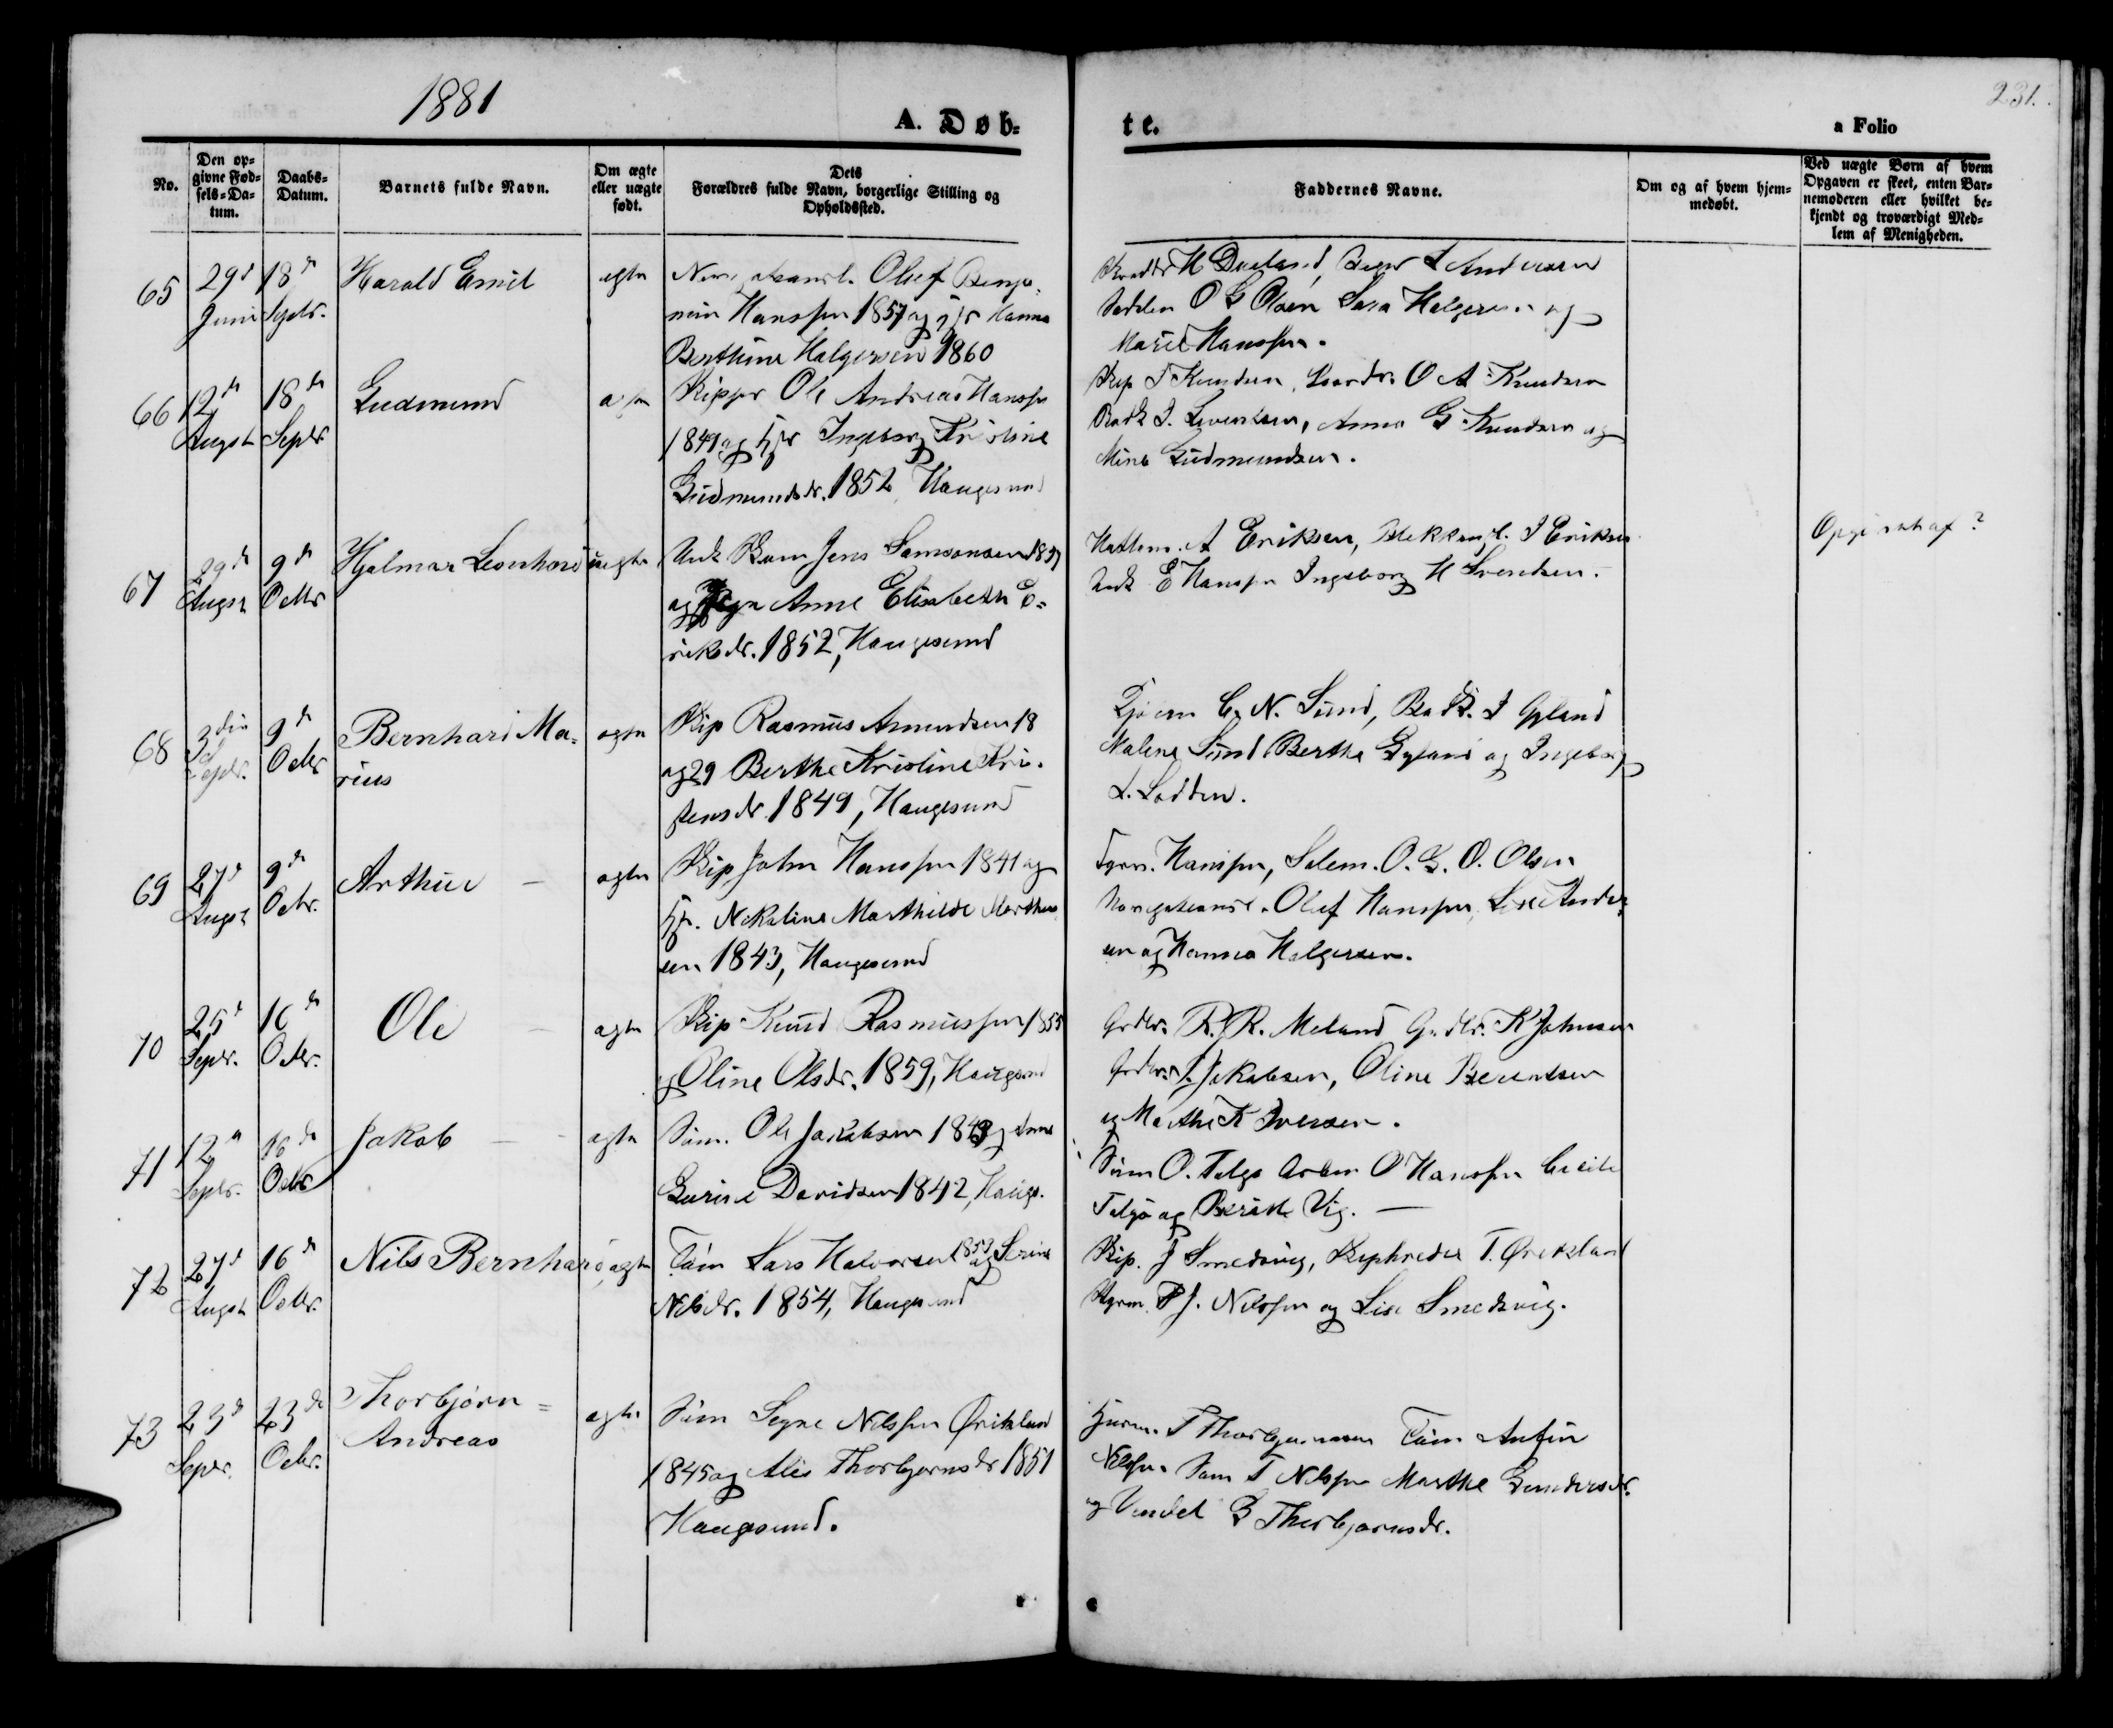 1881
A. Døb-
te.
231.
a Folio
No.
Den op-
givne Fød-
sels-Da-
tum.
Daabs-
Datum.
Barnets fulde Navn.
Om ægte
eller uægte
født.
Dets
Forældres fulde Navn, borgerlige Stilling og
Opholdssted.
Faddernes Navne.
Om og af hvem hjem-
medøbt.
Ved uægte Børn af hvem
Opgaven er skeet, enten Bar-
nemoderen eller hvilket be-
kjendt og troværdigt Med-
lem af Menigheden.
65
29d
Juni
18d
Septr.
Harald Emil
egte
Oluf Benja-
min Hanssen 1857 og Hanna
Berthine Halgersen 1860
O G Olsen Sara Halgersen og
Marie Hanssen.
66
12d
Augst
18de
Septr
Gudmund
Skipper Ole Andreas Hanssen
1849 og Hst Ingeborg Kristine
Gudmundsdr. 1852 Haugesund
Skip T Knudsen, O A Knudsen
J. Sivertsen, Anna G Knudsen og
Mina Gudmundsen.
67
29d
Augst
9d
Octbr
Hjalmar Leonhard
uegte
Unk Jens Samsonsen 1857
og Anne Elisabeth E-
riksdr. 1852, Haugesund
A Eriksen, J Eriksen
Unk E Hanssen Ingeborg H Svendsen.
?
68
3die
Septr.
9d
Octbr
Bernhard Ma-
rius
egte
Skip Rasmus Amundsen 18
og Berthe Kristine Kri-
stensdr 1849, Haugesund
N. Sund, J Gyland
Malene Sund Berthe Gyland og Ingeborg
L. Lodden.
69
27d
Augst
9d
Octr.
Arthur —
egte
Skip John Hanssen 1841 og
Hst. Nikoline Marthilde Marthin
sen 1843, Haugesund
Hanssen, O. G. O. Olsen
Oluf Hanssen, Lise Ander-
sen og Hanna Halgersen.
70
25d
Septr.
16d
Octbr.
Ole —
egte
Skip Knud Rasmussen 1855
og Oline Olsdr. 1859, Haugesund
Grdbr. R. R. Meland Grdbr. K Johnsen
Grdbr. J. Jakobsen, Oline Berentsen
og Marthe K Iversen.
71
12d
Septr.
16d
Octbr
Jakob — -
egte
Søm. Ole Jakobsen 1843 og Anne
Gurine Davidsen 1842, Hauges.
Søm O. Telgø O Hanssen
Telgø og Berit Vig. —
72
27d
Augst
16d
Octbr.
Nils Bernhard
egte
Tøm Lars Halvorsen 1853 og Serine
Nilsdr. 1854, Haugesund
Skip. J Smedsvig, T. Øretsland
Styrm. P J. Nilssen og Lise Smedsvig.
73
23d
Septr.
23d
Octbr.
Thorbjørn =
Andreas
egte
Søm Nilssen Øritsland
1845 og Alis Thorbjørnsdr 1851
Haugesund.
T Thorbjørnsen Tøm Anfin
Nilssen Søm T Nilssen Marthe Gundersdr.
og Vendel B Thorbjørnsdr.